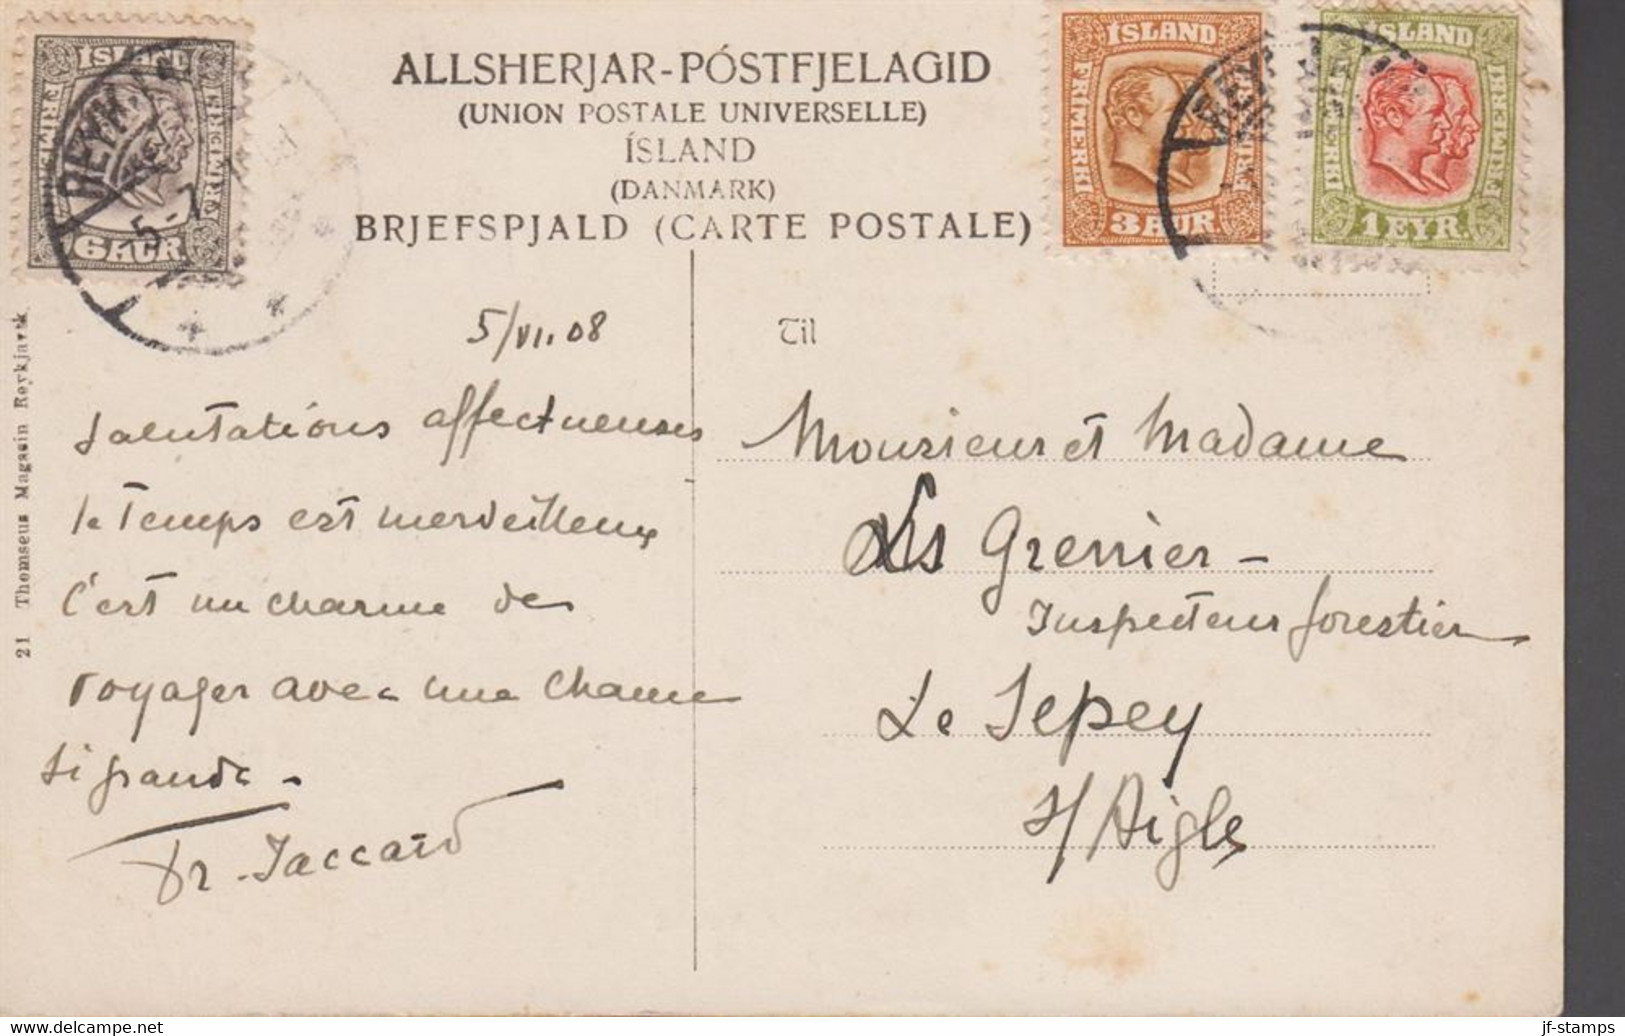 ALLSHERJAR-PÓSTFJELAGID
(UNION POSTALE UNIVERSELLE)
ÍSLAND
(DANMARK)
BRJEFSPJALD (CARTE POSTALE)
ÍSLAND
FRIMERKI
FRIMERKI
6 AUR
REYKJA
5-7
ÍSLAND
FRIMERKI
3 AUR
REYK
ÍSLAND
FRIMERKI
FRIMERKI
1 EYR.
21 Thomsens Magasin Reykjavík
5/VI.08
Salutations affectueuses
le temps est merveilleux
C'est un charme de
voyager avec une chance
si grande -
Jaccard
Til
Monsieur et Madame
Grenier -
Inspecteur forestier
Le Sepey
s/ Aigle
jf-stamps